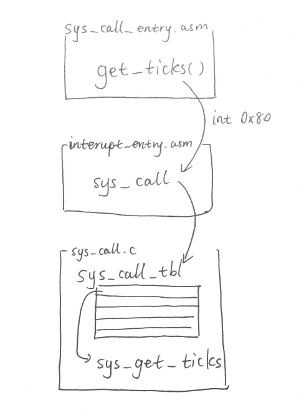 sys_call_entry.asm
get_ticks()
int 0x80
interupt_entry.asm
sys_call
sys_call.c
sys_call_tbl
sys_get_ticks